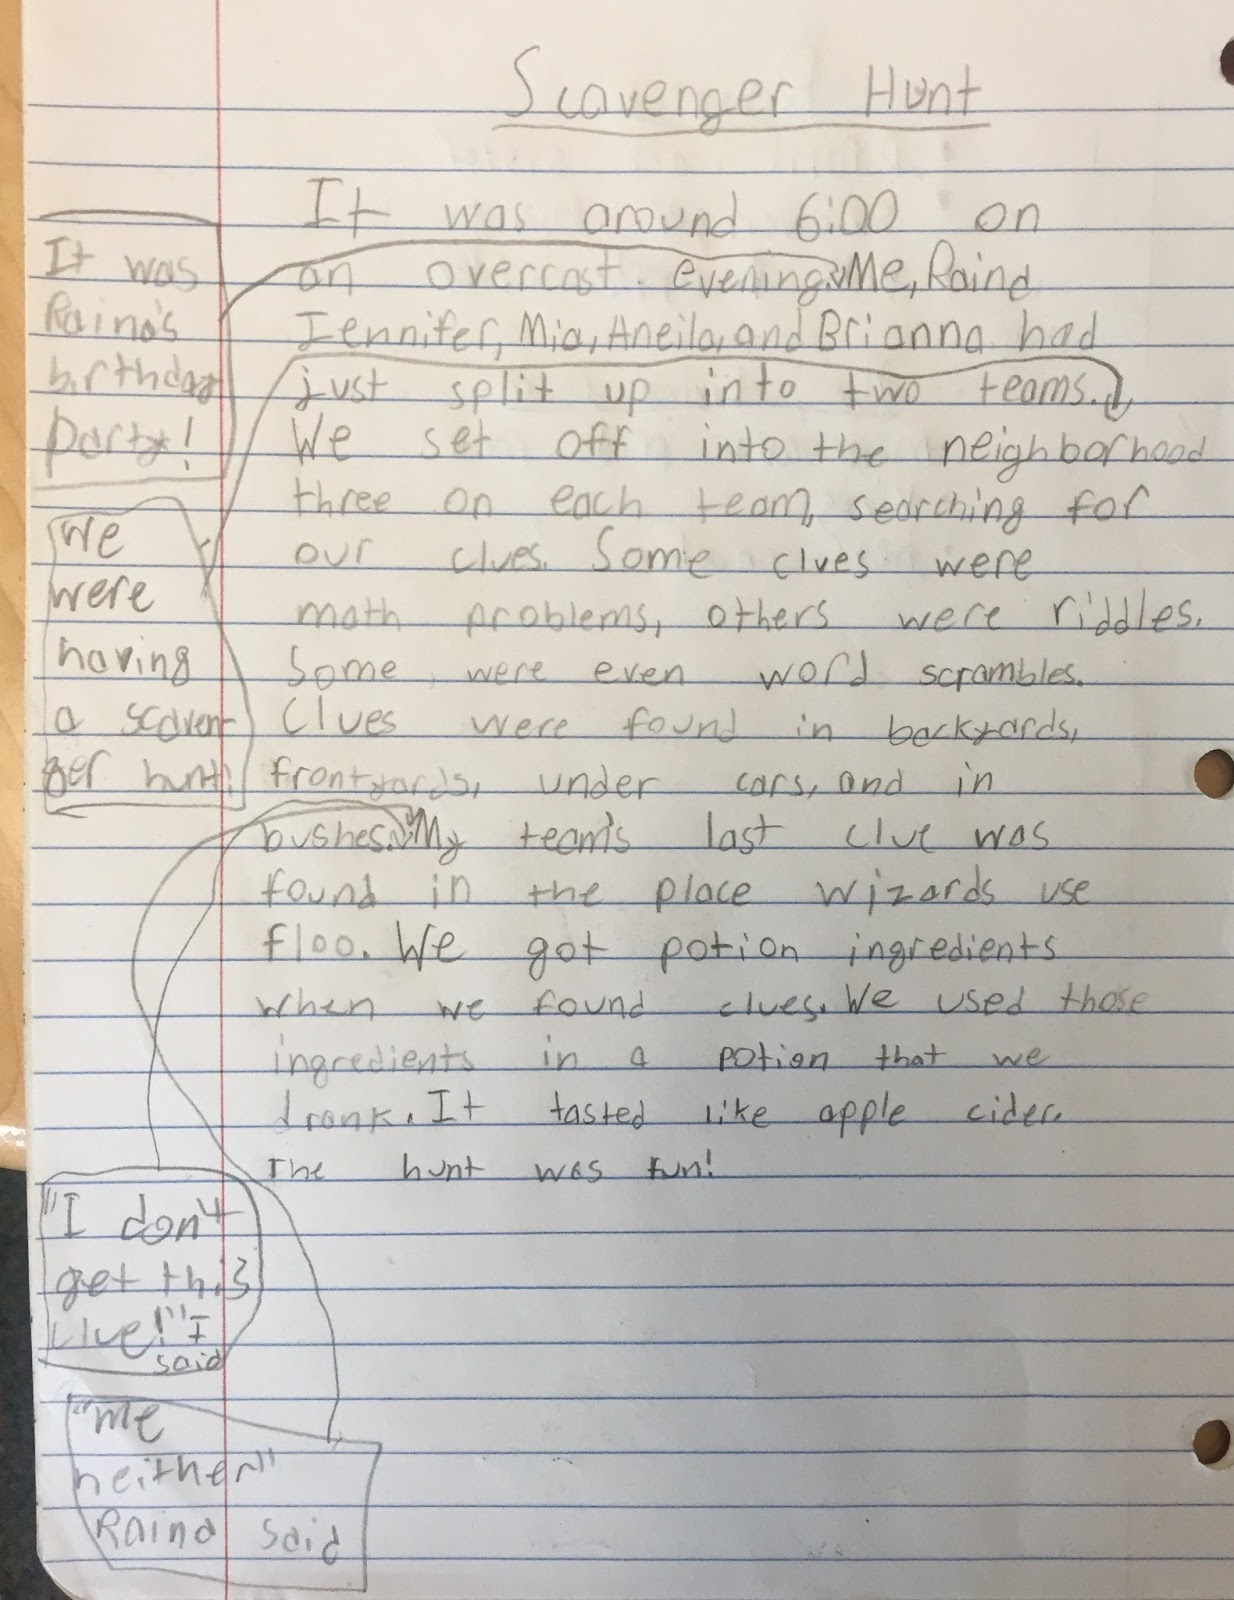 Scavenger Hunt
It was around 6:00 on
an overcast evening. Me, Raina
Jennifer, Mia, Aneila, and Brianna had
just split up into two teams.
We set off into the neighborhood
three on each team, searching for
our clues. Some clues were
math problems, others were riddles.
Some were even word scrambles.
Clues were found in backyards,
frontyards, under cars, and in
bushes. My team's last clue was
found in the place wizards use
floo. We got potion ingredients
when we found clues. We used those
ingredients in a potion that we
drank. It tasted like apple cider.
The hunt was fun!
It was
Raina's
birthday
party!
We
were
having
a scaven-
ger hunt!
"I don't
get this
clue!" I
said
"me
neither"
Raina said